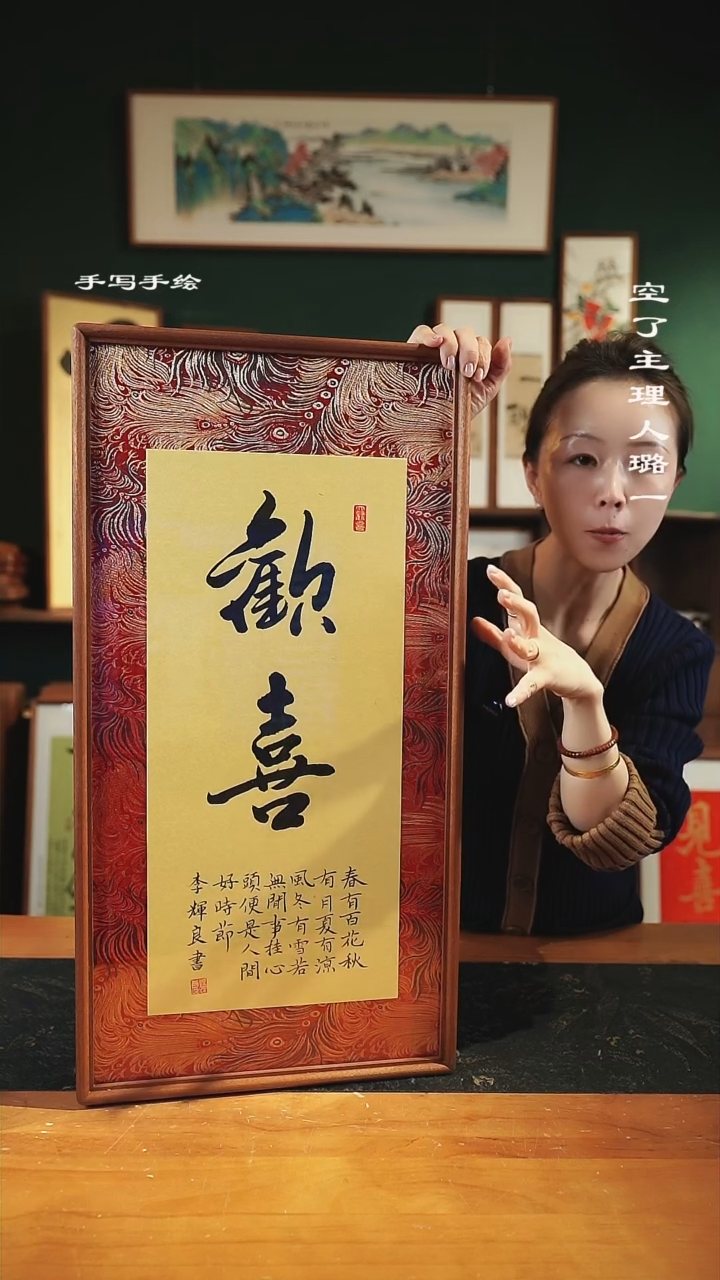 手写手绘
空了主理人璐一
歡
喜
春有百花秋
有月夏有涼
風冬有雪若
無閒事挂心
頭便是人間
好時節
李輝良書
見
喜